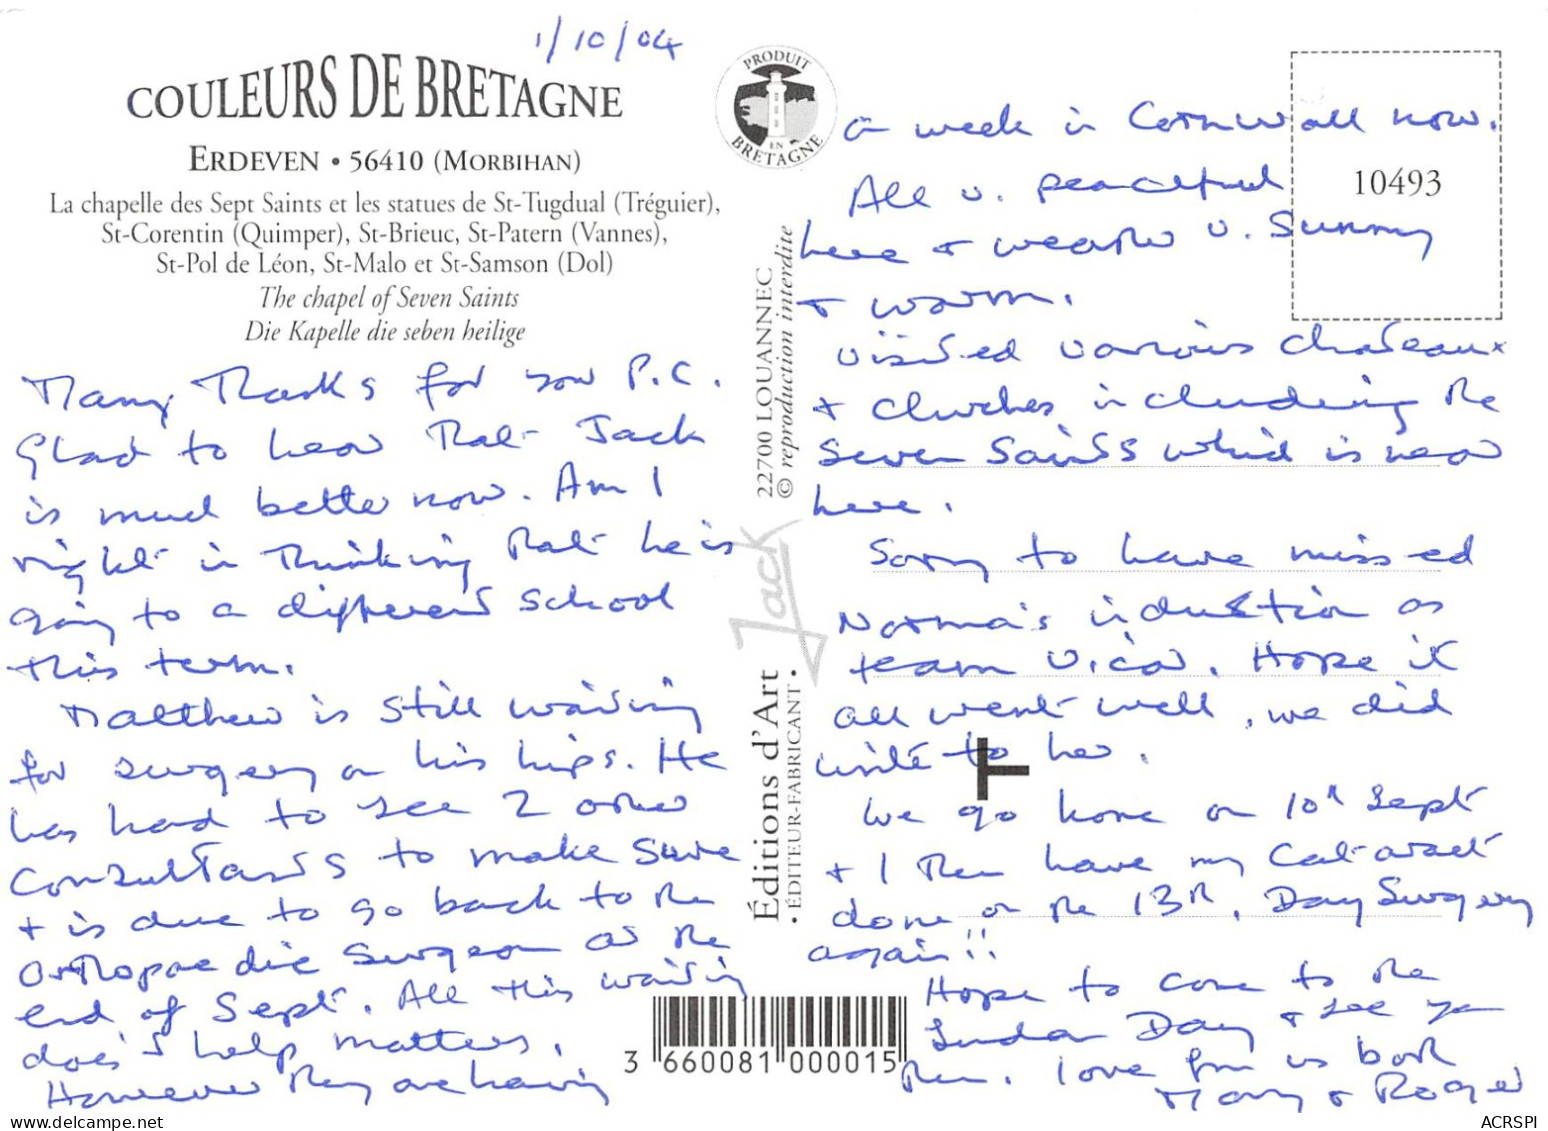 1/10/04
COULEURS DE BRETAGNE
ERDEVEN • 56410 (MORBIHAN)
La chapelle des Sept Saints et les statues de St-Tugdual (Tréguier),
St-Corentin (Quimper), St-Brieuc, St-Patern (Vannes),
St-Pol de Léon, St-Malo et St-Samson (Dol)
The chapel of Seven Saints
Die Kapelle die seben heilige
Many Thanks for your P.C.
Glad to hear that Jack
is much better now. Am I
right in thinking that he is
going to a different school
this term.
Matthew is still waiting
for surgery on his hips. He
has had to see 2 other
consultants to make sure
+ is due to go back to the
orthopaedic surgeon at the
end of Sept. All this waiting
doesn't help matters.
However they are having
PRODUIT
EN
BRETAGNE
22700 LOUANNEC
© reproduction interdite
Jack
Éditions d'Art
• ÉDITEUR-FABRICANT •
3 660081 000015
10493
a week in Cornwall now.
All v. peaceful
here + weather v. sunny
+ warm.
Visited various chateaux
+ churches including the
Seven Saints which is near
here.
Sorry to have missed
Norma's induction as
team vicar. Hope it
all went well, we did
write to her.
We go home on 10th Sept
+ I then have my cataract
done on the 13th. Day Surgery
again!!
Hope to come to the
Day + see you
then. Love from us both
Mary + Roger
ACRSPI